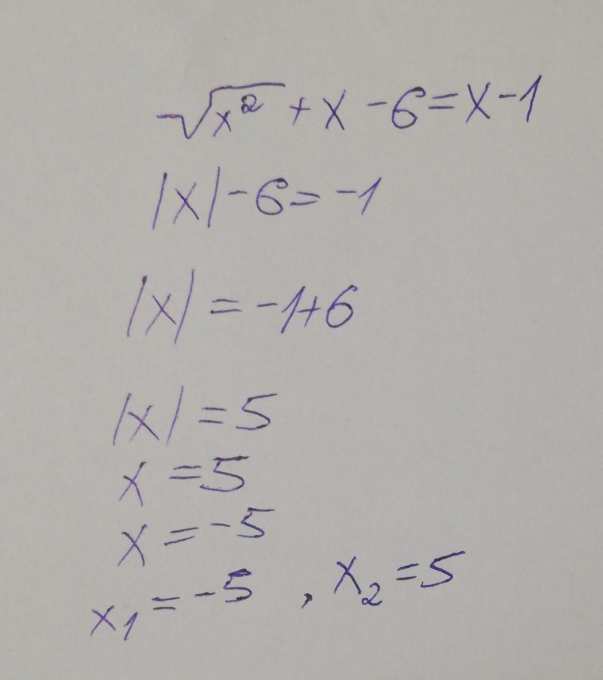 √x² + x - 6 = x - 1
|x| - 6 = -1
|x| = -1+6
|x| = 5
x = 5
x = -5
x₁ = -5 , x₂ = 5